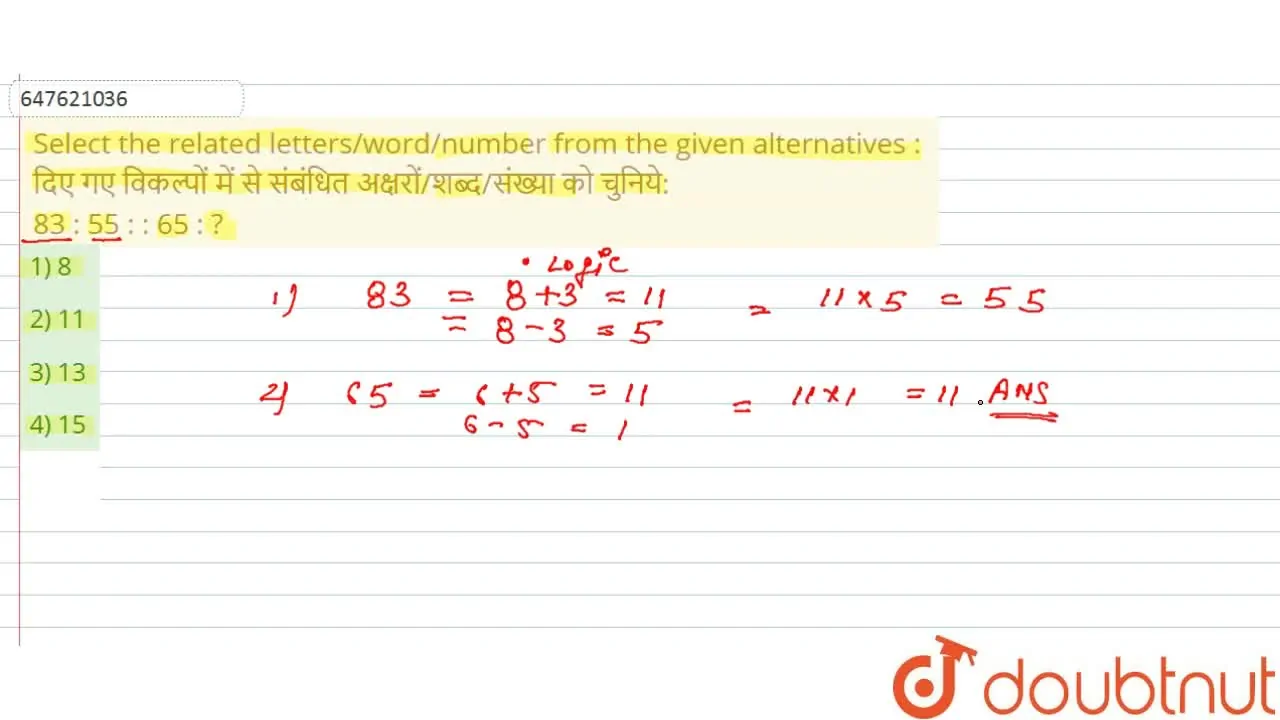 647621036
Select the related letters/word/number from the given alternatives :
दिए गए विकल्पों में से संबंधित अक्षरों/शब्द/संख्या को चुनिये:
83 : 55 : : 65 : ?
1) 8
2) 11
3) 13
4) 15
Logic
1) 83 = 8+3 = 11 = 11 × 5 = 55
= 8 - 3 = 5
2) 65 = 6+5 = 11 = 11×1 = 11 . ANS
6 - 5 = 1
doubtnut